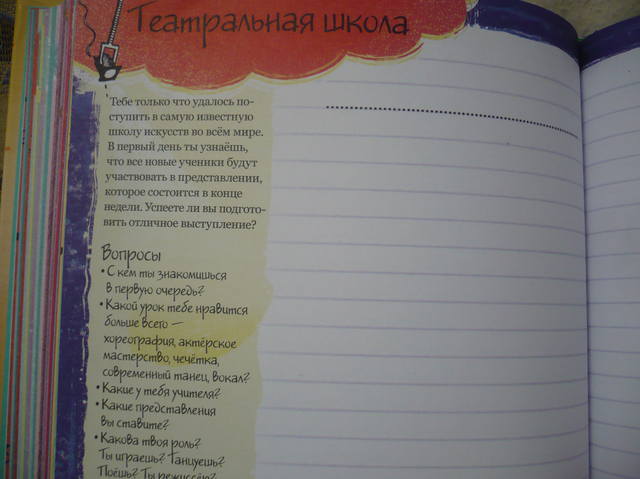 Театральная школа
Тебе только что удалось по-
ступить в самую известную
школу искусств во всём мире.
В первый день ты узнаёшь,
что все новые ученики будут
участвовать в представлении,
которое состоится в конце
недели. Успеете ли вы подгото-
вить отличное выступление?
Вопросы
• С кем ты знакомишься
в первую очередь?
• Какой урок тебе нравится
больше всего —
хореография, актёрское
мастерство, чечётка,
современный танец, вокал?
• Какие у тебя учителя?
• Какие представления
вы ставите?
• Какова твоя роль?
Ты играешь? Танцуешь?
Поёшь? Ты режиссёр?